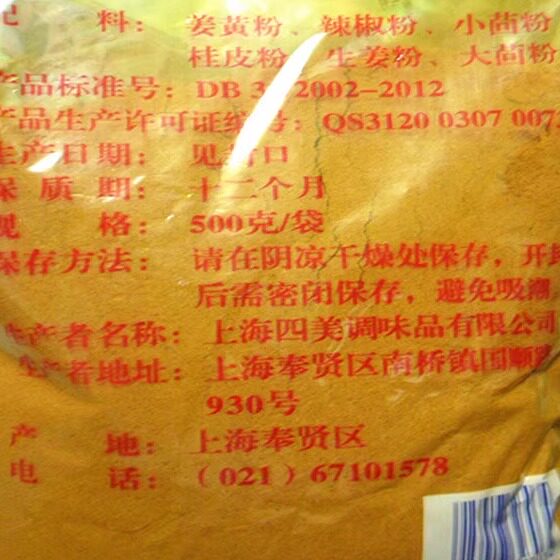 配 料：姜黄粉、辣椒粉、小茴粉
桂皮粉、生姜粉、大茴粉
产品标准号：DB 3 2002-2012
产品生产许可证编号：QS3120 0307 007
生产日期：见封口
保 质 期：十二个月
规 格：500克/袋
保存方法：请在阴凉干燥处保存，开封
后需密闭保存，避免吸潮
生产者名称：上海四美调味品有限公司
生产者地址：上海奉贤区南桥镇国顺
930号
产 地：上海奉贤区
电 话：（021）67101578